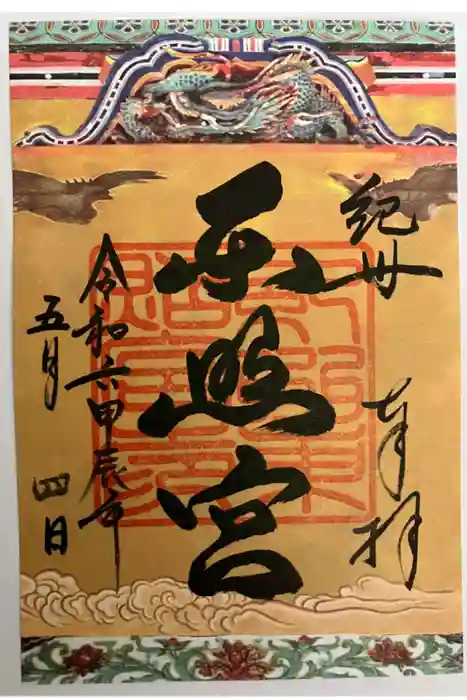 紀州　奉拝
東照宮
令和六甲辰年
五月　四日